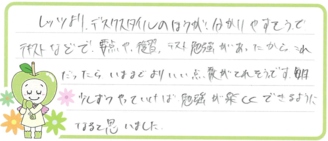 レッツより、デスクスタイルのほうが、分かりやすそうで
テキストなどで、要点や、復習、テスト勉強があったから、これ
だったら いままでよりいい点数がとれそうです。毎日
少しずつやっていけば 勉強が楽にできるように
なると思いました。